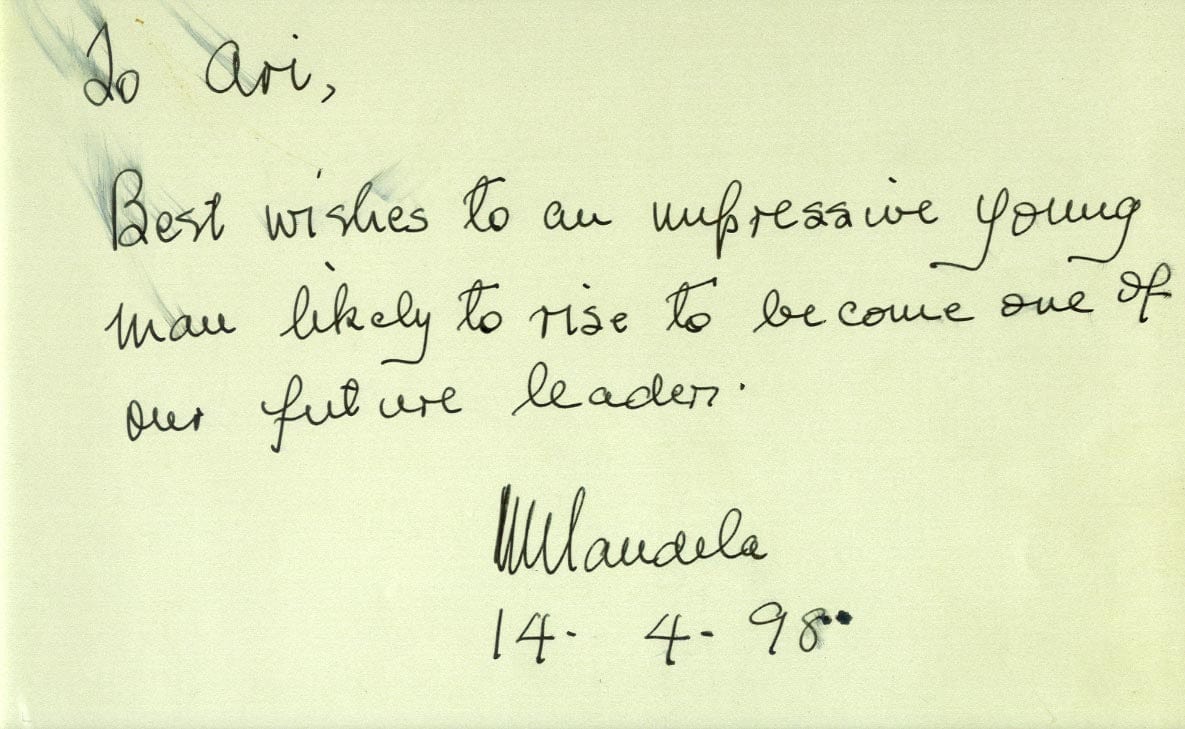 To Ari,
Best wishes to an impressive young
man likely to rise to become one of
our future leaders.
NMandela
14. 4. 98